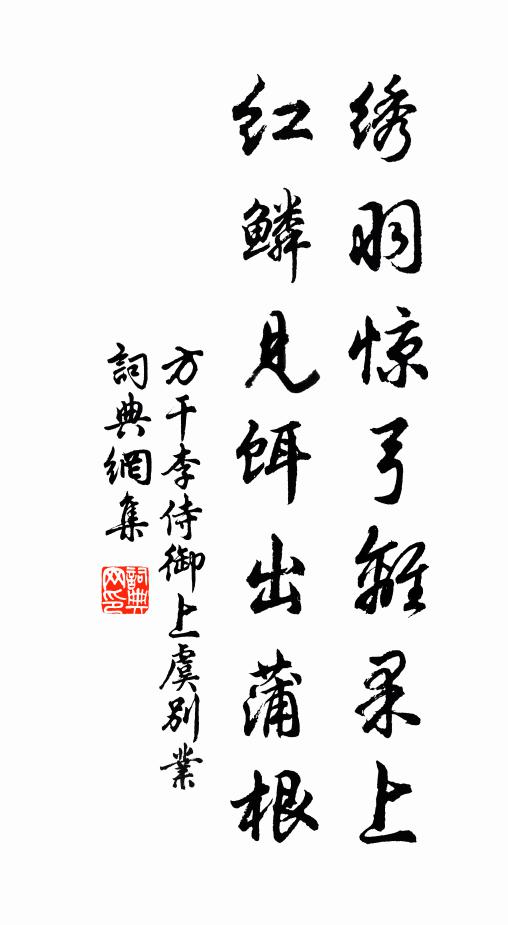 绣羽惊弓离果上
红鳞见饵出蒲根
方干李侍御上虞别业
詞典網集
詞典網印